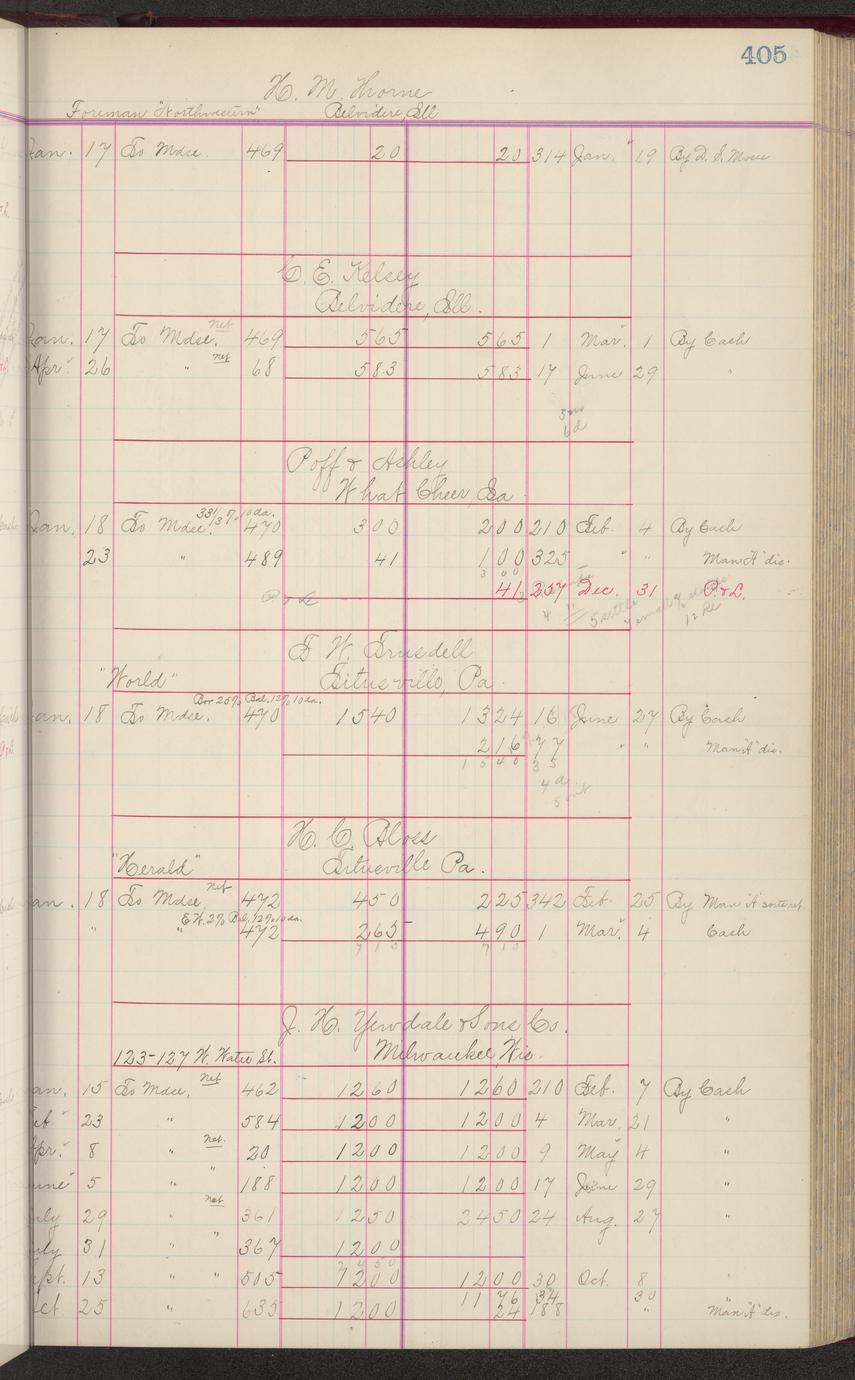 405
H. M. Thorne
Foreman "Northwestern" Belvidere, Ill
Jan. 17 To Mdse. 469 20 20 314 Jan. 19 By D. S. Move
C. E. Kelsey
Belvidere, Ill.
Jan. 17 To Mdse. net 469 565 565 1 Mar. 1 By Cash
Apr. 26 " net 68 583 583 17 June 29 "
3 mo
6 d
Poff & Ashley
What Cheer, Ia
Jan. 18 To Mdse. 33 1/3 % 10 da. 470 300 200 210 Feb. 4 By Cash
23 " 489 41 100 325 " " Man "A" dis.
300
P & L 41 257 Dec. 31 P. & L.
F. W. Truesdell
"World" Titusville, Pa
Bor 25% Bal. 12% 10 da.
Jan. 18 To Mdse. 470 1540 1324 16 June 27 By Cash
216 77 " " Man "A" dis.
1540 35
H. C. Bloss
"Herald" Titusville Pa.
Jan. 18 To Mdse. net 472 450 225 342 Feb. 25 By Man "A"
E.W. 2% Bal, 12% 10 da.
" " 472 265 490 1 Mar. 4 Cash
715 715
J. H. Yewdale & Sons Co.
123-127 W. Water St. Milwaukee, Wis.
Jan. 15 To Mdse, net 462 1260 1260 210 Feb. 7 By Cash
Feb. 23 " 584 1200 1200 4 Mar. 21 "
Apr. 8 " net. 20 1200 1200 9 May 4 "
June 5 " " 188 1200 1200 17 June 29 "
July 29 " net 361 1250 2450 24 Aug. 27 "
July 31 " " 367 1200
2450
Sept. 13 " " 505 1200 1200 30 Oct. 8 "
1176 34 30 "
Oct. 25 " 635 1200 24 188 " Man "A" dis.